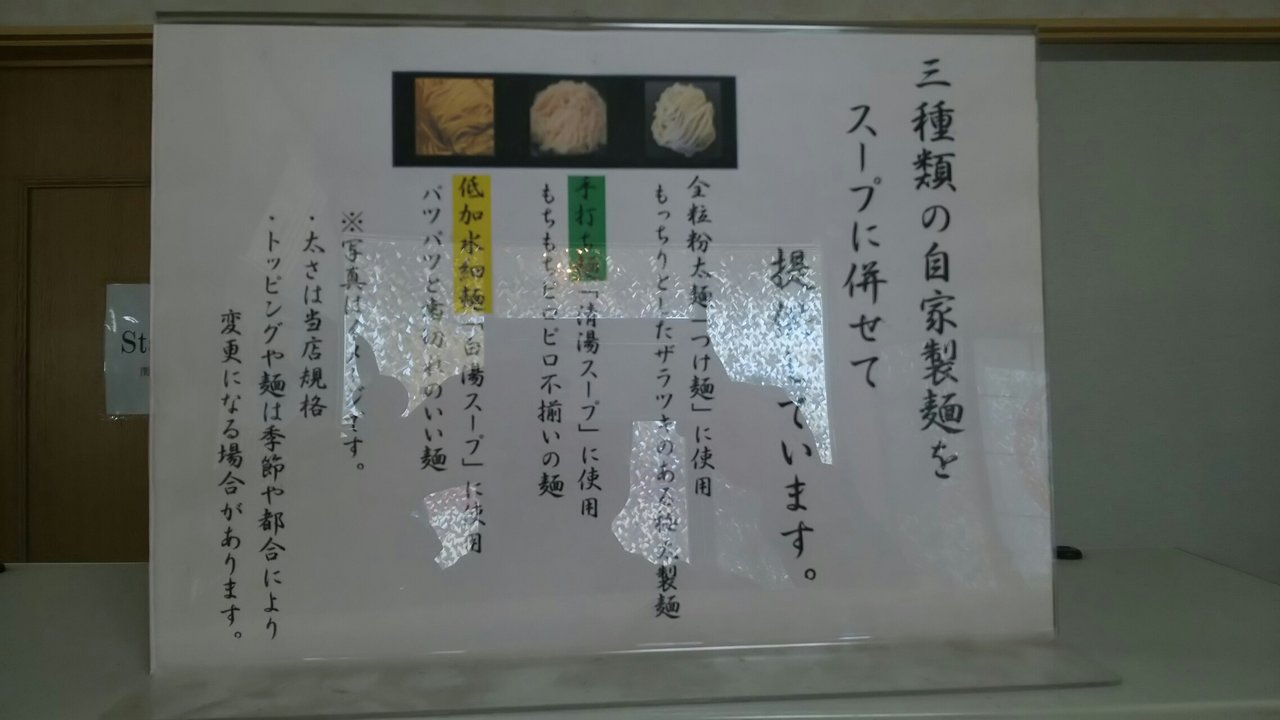 三種類の自家製麺を
スープに併せて
提供しています。
全粒粉太麺「つけ麺」に使用
もっちりとしたザラツキのある極太製麺
手打ち麺「清湯スープ」に使用
もちもちピロピロ不揃いの麺
低加水細麺「白湯スープ」に使用
パツパツと歯切れのいい麺
※写真はイメージです。
・太さは当店規格
・トッピングや麺は季節や都合により
変更になる場合があります。
St